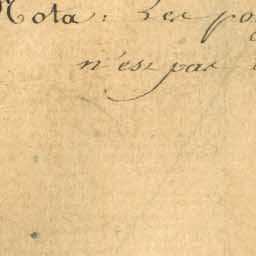 Nota: Les
n'est pas